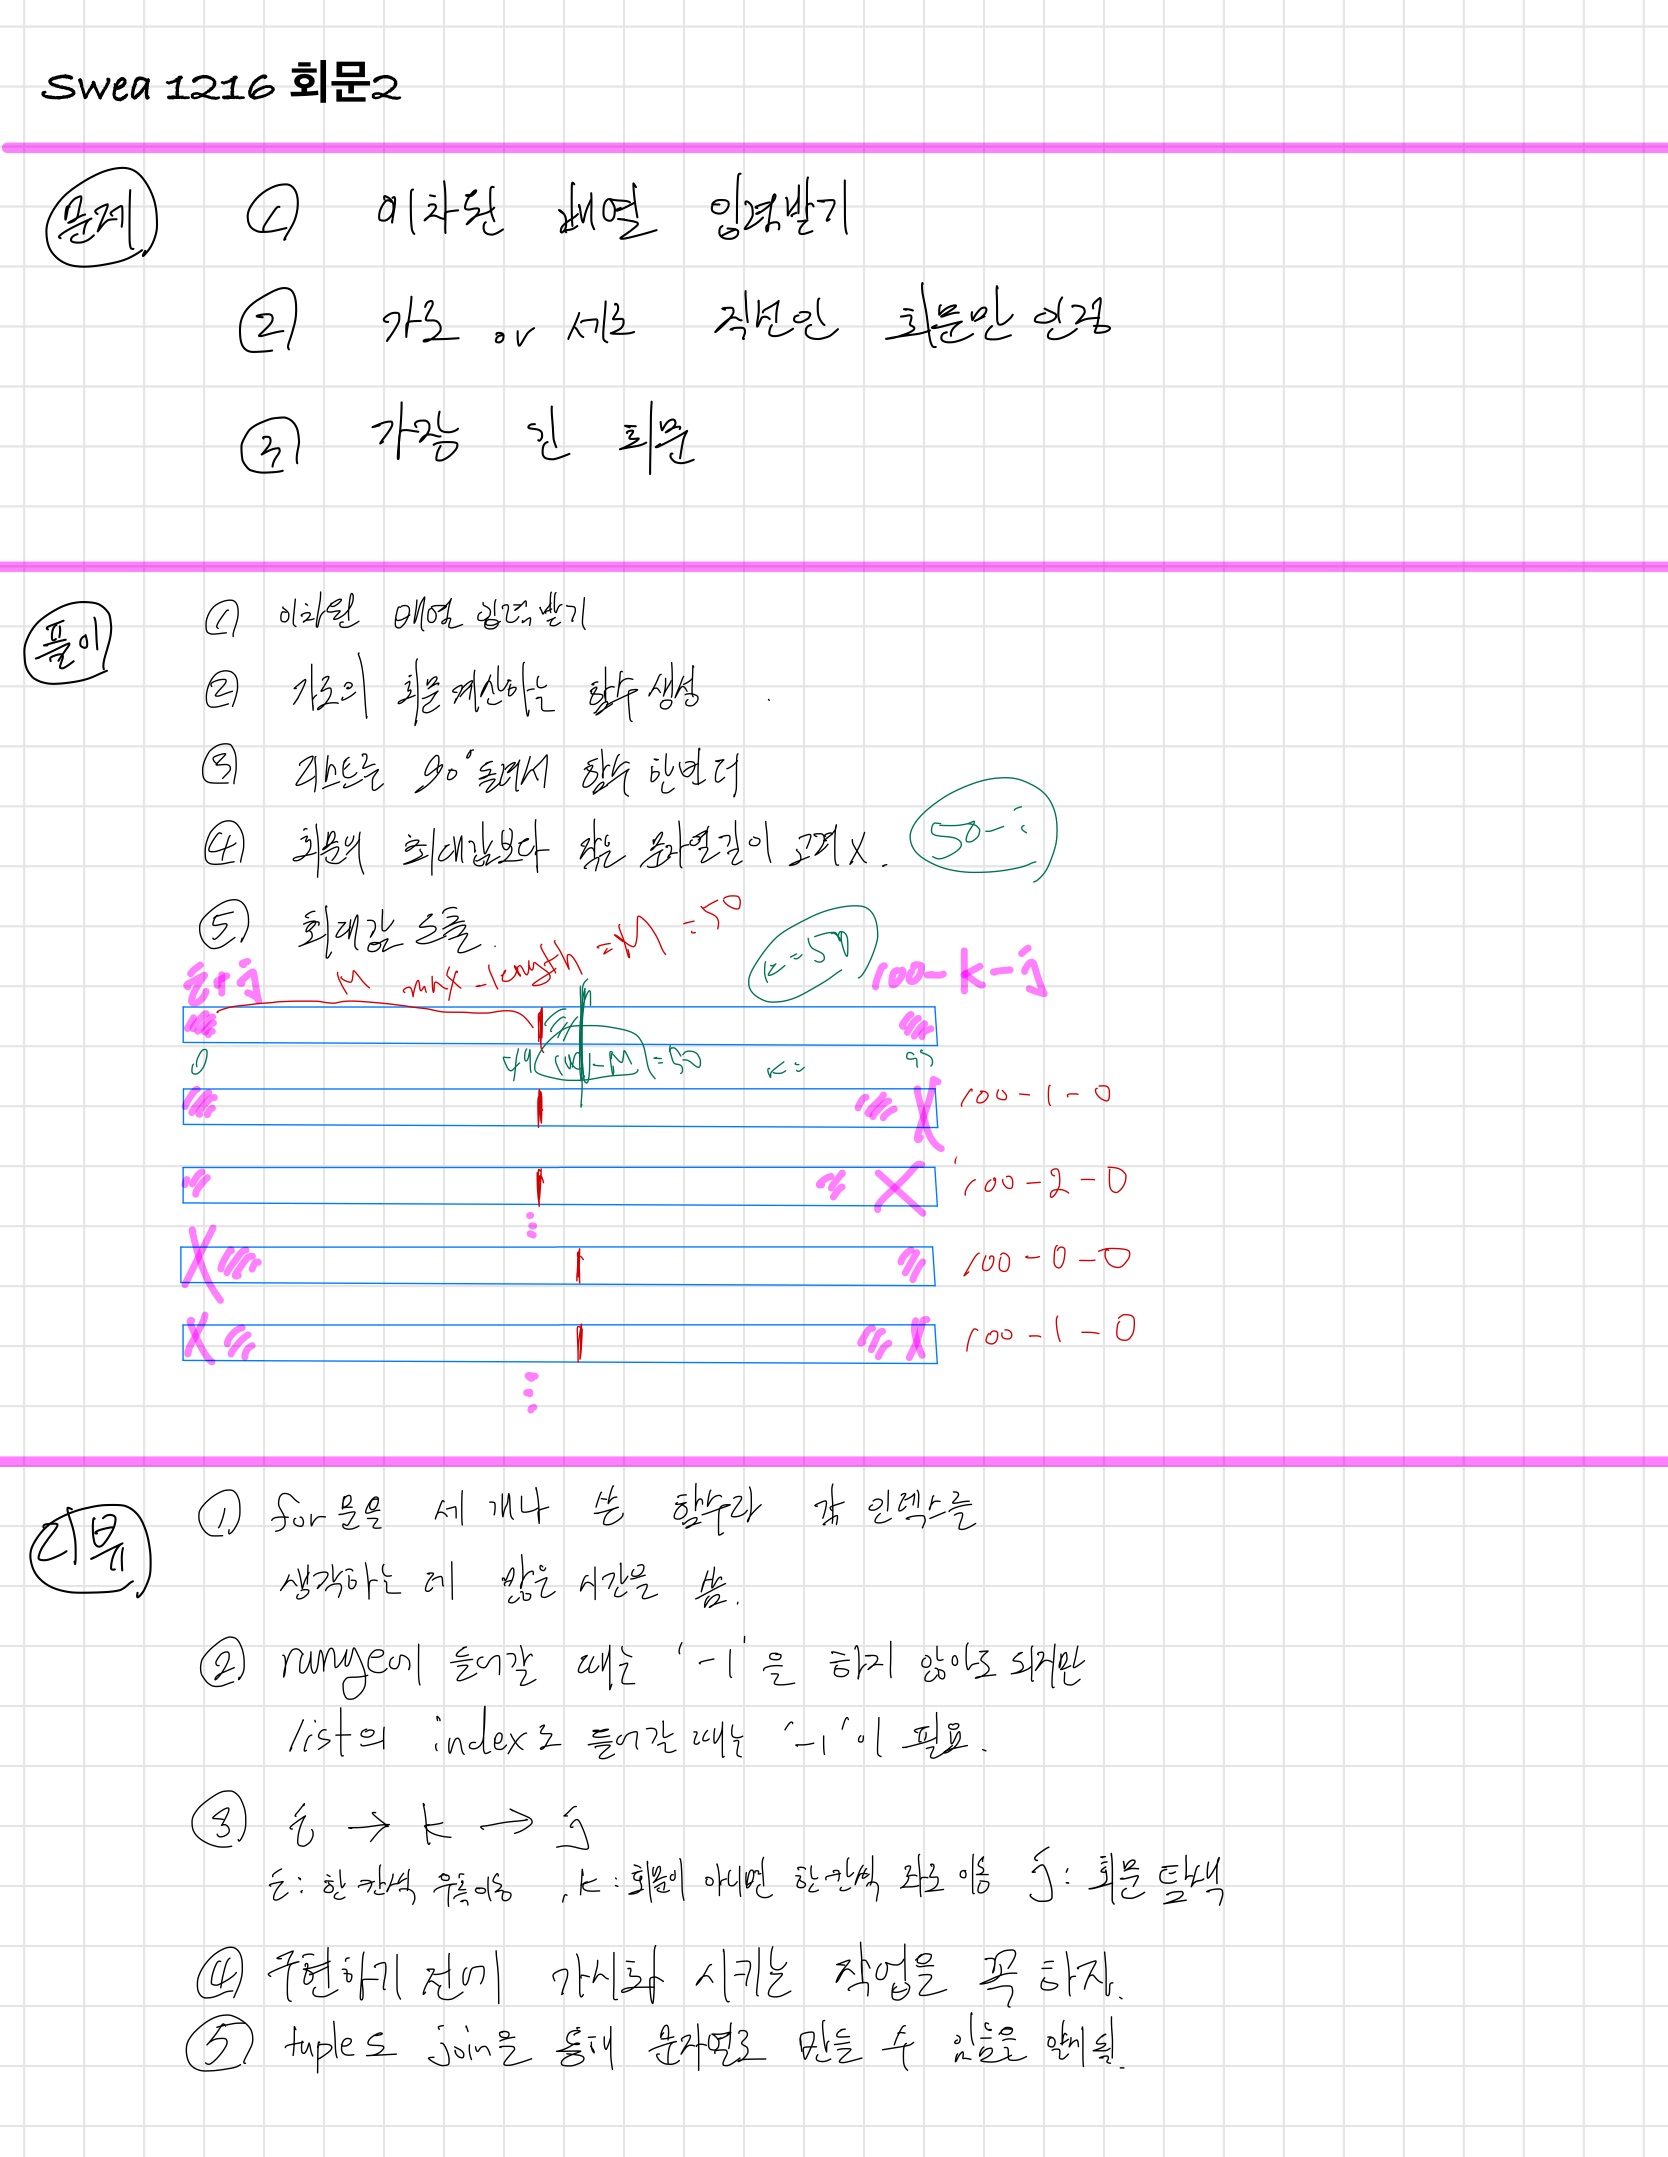 Swea 1216 회문2
문제
① 이차원 배열 입력받기
② 가로 or 세로 직선인 회문만 인정
③ 가장 긴 회문
풀이
① 이차원 배열 입력받기
② 가로의 회문 계산하는 함수 생성
③ 리스트를 90° 돌려서 함수 한번 더
④ 회문의 최대값보다 작은 문자열길이 고려 X.
50-i
⑤ 최대값 도출.
M max_length = M = 50
k=50
i+j
100-k-j
0 49 100-M =50 k= 99
100-1-0
100-2-0
100-0-0
100-1-0
리뷰
① for문을 세 개나 쓴 함수라 각 인덱스를
생각하는 데 많은 시간을 씀.
② range에 들어갈 때는 '-1'을 하지 않아도 되지만
list의 index로 들어갈 때는 '-1'이 필요.
③ i → k → j
i: 한 칸씩 우측이동, k: 회문이 아니면 한 칸씩 좌로 이동 j: 회문 탐색
④ 구현하기 전에 가시화 시키는 작업을 꼭 하자.
⑤ tuple도 join을 통해 문자열로 만들 수 있음을 알게 됨.